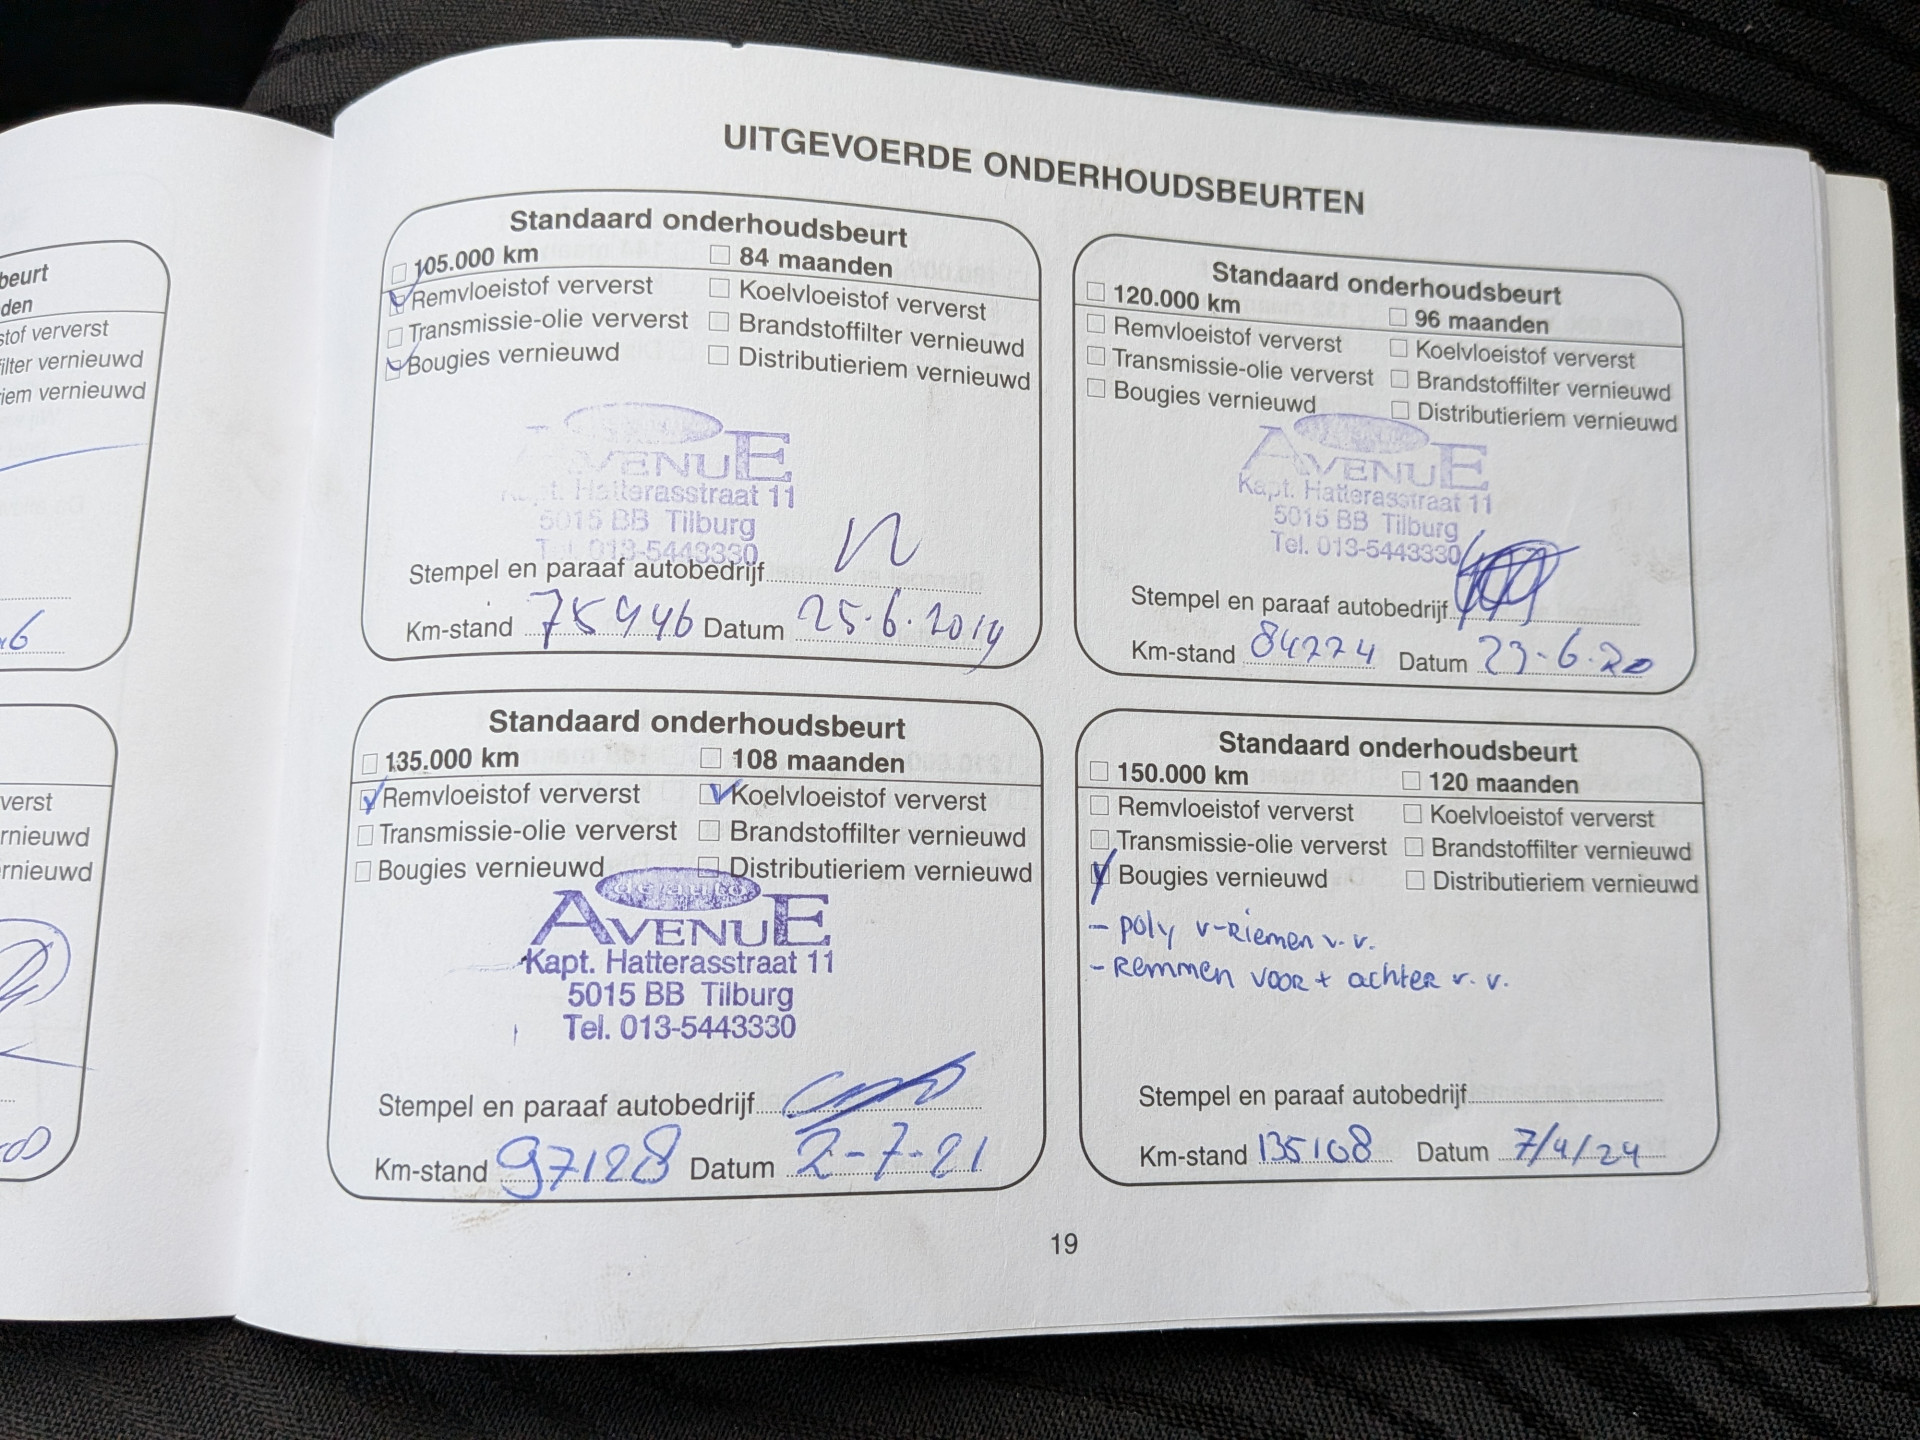 UITGEVOERDE ONDERHOUDSBEURTEN
Standaard onderhoudsbeurt
105.000 km 84 maanden
Remvloeistof ververst Koelvloeistof ververst
Transmissie-olie ververst Brandstoffilter vernieuwd
Bougies vernieuwd Distributieriem vernieuwd
AVENUE
Kapt. Hatterasstraat 11
5015 BB Tilburg
Tel. 013-5443330
Stempel en paraaf autobedrijf
Km-stand 75946 Datum 25.6.2019
Standaard onderhoudsbeurt
120.000 km 96 maanden
Remvloeistof ververst Koelvloeistof ververst
Transmissie-olie ververst Brandstoffilter vernieuwd
Bougies vernieuwd Distributieriem vernieuwd
AVENUE
Kapt. Hatterasstraat 11
5015 BB Tilburg
Tel. 013-5443330
Stempel en paraaf autobedrijf
Km-stand 84774 Datum 23-6-20
Standaard onderhoudsbeurt
135.000 km 108 maanden
Remvloeistof ververst Koelvloeistof ververst
Transmissie-olie ververst Brandstoffilter vernieuwd
Bougies vernieuwd Distributieriem vernieuwd
de auto
AVENUE
Kapt. Hatterasstraat 11
5015 BB Tilburg
Tel. 013-5443330
Stempel en paraaf autobedrijf
Km-stand 97128 Datum 2-7-21
Standaard onderhoudsbeurt
150.000 km 120 maanden
Remvloeistof ververst Koelvloeistof ververst
Transmissie-olie ververst Brandstoffilter vernieuwd
Bougies vernieuwd Distributieriem vernieuwd
- poly v-Riemen v.v.
- Remmen voor + achter v.v.
Stempel en paraaf autobedrijf
Km-stand 135108 Datum 7/4/24
19
beurt
den
stof ververst
filter vernieuwd
iem vernieuwd
verst
rnieuwd
rnieuwd